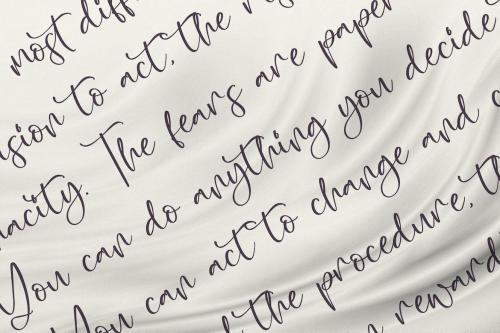 most
to act, the
The fears are paper
You can do anything you decide
You can act to change and
the procedure,